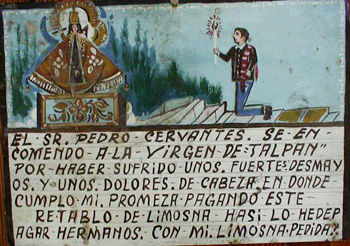 EL SR. PEDRO CERVANTES. SE EN-
COMENDO A LA VIRGEN DE "TALPAN"
POR HABER SUFRIDO UNOS. FUERTES. DESMAY
OS. Y UNOS. DOLORES. DE CABEZA. EN DONDE
CUMPLO MI. PROMEZA PAGANDO ESTE
RETABLO DE LIMOSNA HASI LO HEDEP
AGAR. HERMANOS. CON MI. LIMOSNA PEDIDA.